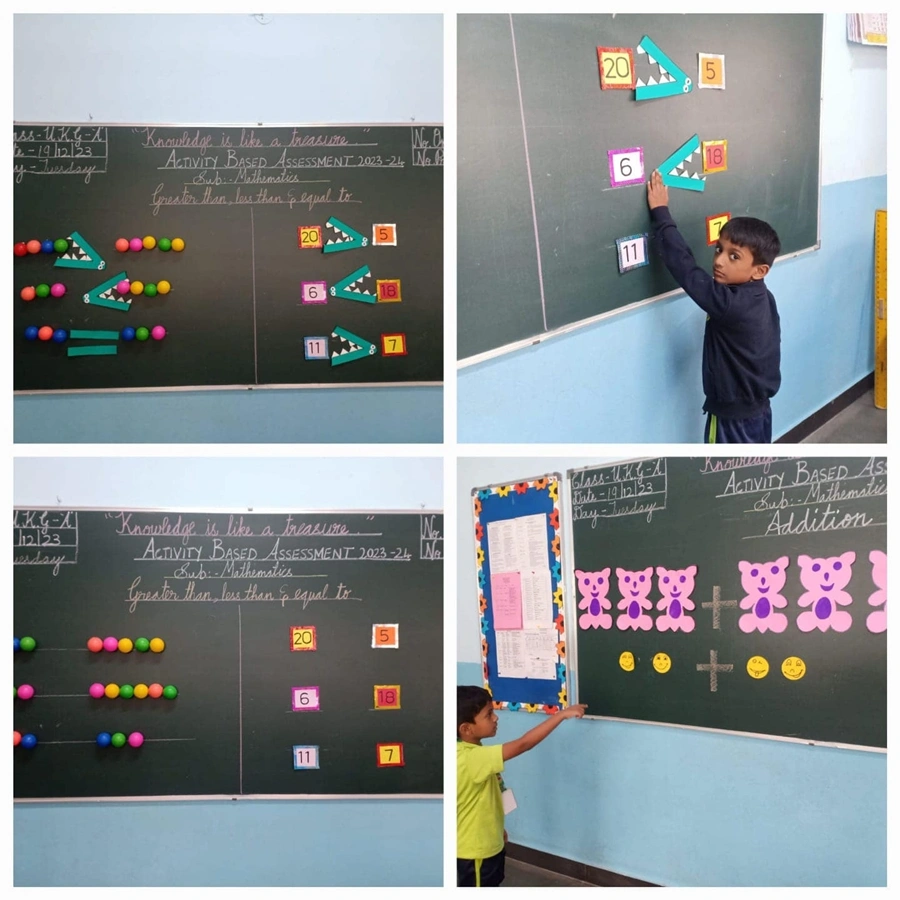 ass-U.K.G-A
te-19/12/23
y-Tuesday
"Knowledge is like a treasure."
ACTIVITY BASED ASSESSMENT 2023-24
Sub:-Mathematics
Greater than, less than & equal to
No.
No.
20 5
6 18
11 7
20 5
6 18
11 7
U.K.G-A
/12/23
esday
"Knowledge is like a treasure."
ACTIVITY BASED ASSESSMENT 2023-24
Sub:-Mathematics
Greater than, less than & equal to
No.
No.
20 5
6 18
11 7
Class-U.K.G-A
Date-19/12/23
Day-Tuesday
"Knowledge
ACTIVITY BASED ASS
Sub:-Mathematic
Addition
+
+